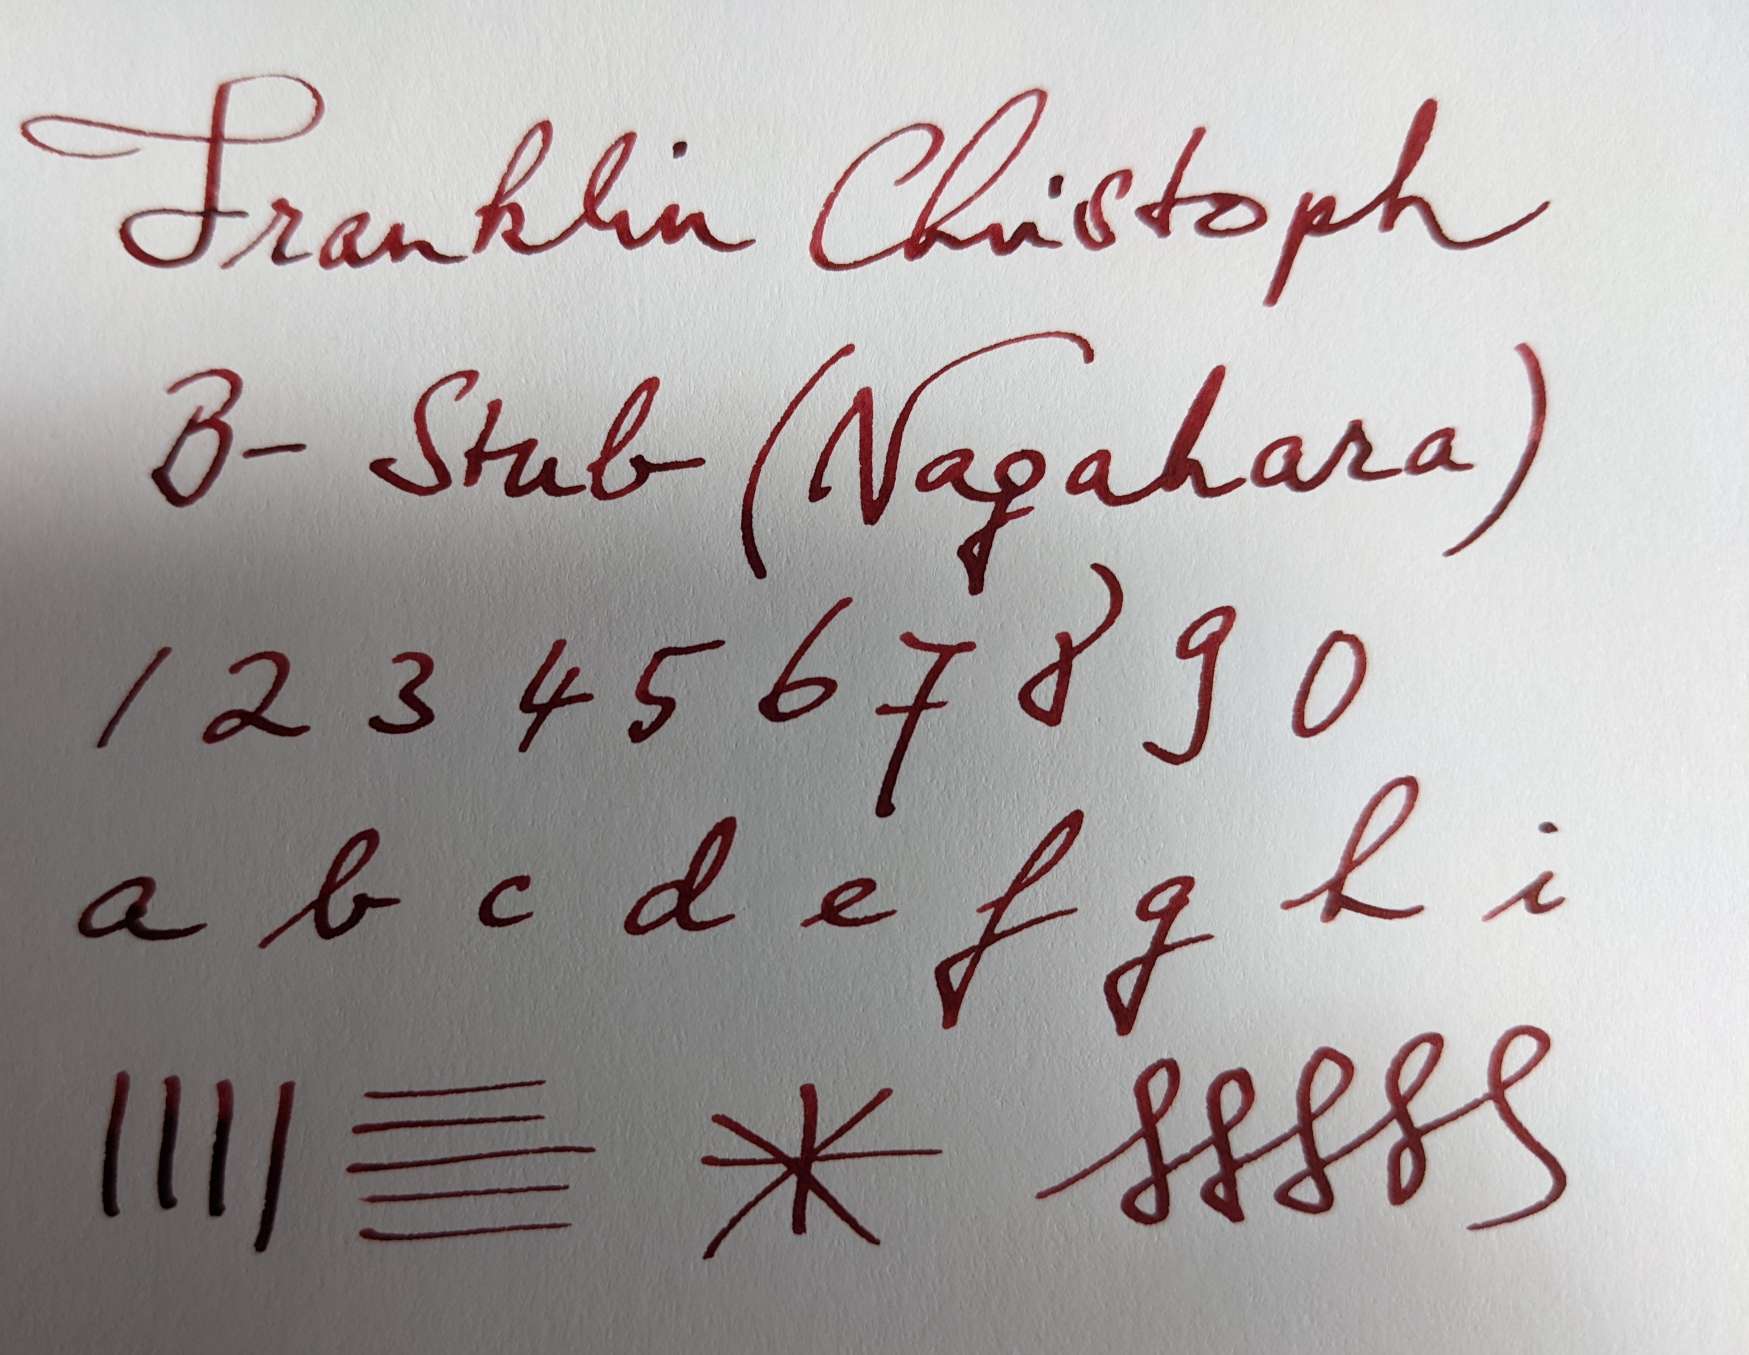 Franklin Christoph
B- Stub (Nagahara)
1 2 3 4 5 6 7 8 9 0
a b c d e f g h i